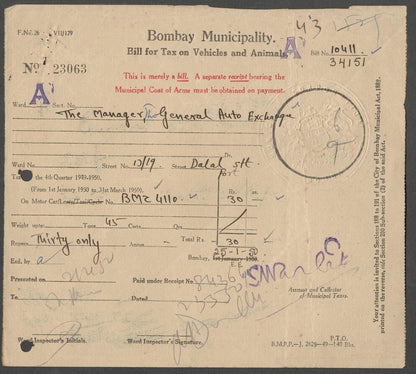 F. No. 26 VII/179
Bombay Municipality.
Bill for Tax on Vehicles and Animals.
A
Bill No. 10411
34151
No 23063
This is merely a bill. A separate receipt bearing the
Municipal Coat of Arms must be obtained on payment.
A
Ward Sect. No.
The Manager, The General Auto Exchange
Street No. 13/19 Street Dalal Stt
Fort
Tax for the 4th Quarter 1949-1950.
(From 1st January 1950 to 31st March 1950).
Rs.
On Motor Car/Lorry/Taxi/Cycle No. BMZ 4110 30
Weight upto: Tons 45 Cwts. Qrs.
Rupees Thirty only Total Rs. 30
25-1-50
Bombay, 1st January 1950.
E.E.
End. by
Presented on
Paid under Receipt No.
Dated
Assessor and Collector
of Municipal Taxes.
Ward Inspector's Initials. Ward Inspector's Signature.
P.T.O.
B.M.P.P.—J. 2626-49—140 Bks.
Your attention is invited to Sections 188 to 191 of the City of Bombay Municipal Act, 1888,
printed on the reverse, vide Section 200 Sub-section (2) of the said Act.